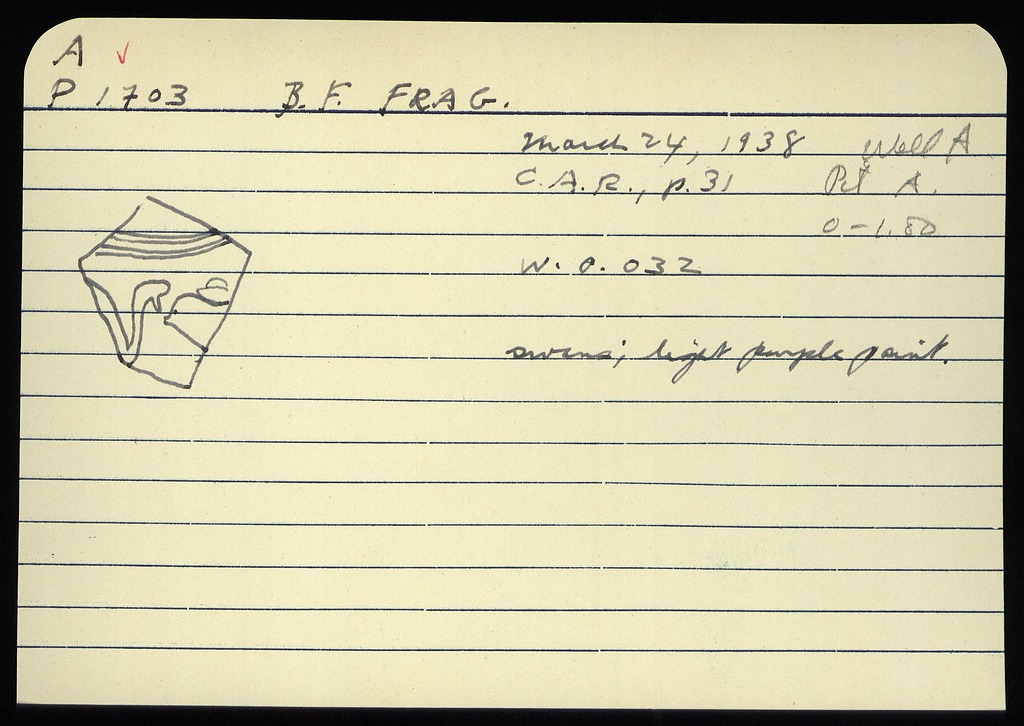 A ✓
P 1703 B.F. FRAG.
March 24, 1938 Well A
C.A.R., p.31 Pit A.
0-1.80
W. P. 032
swans; light purple paint.